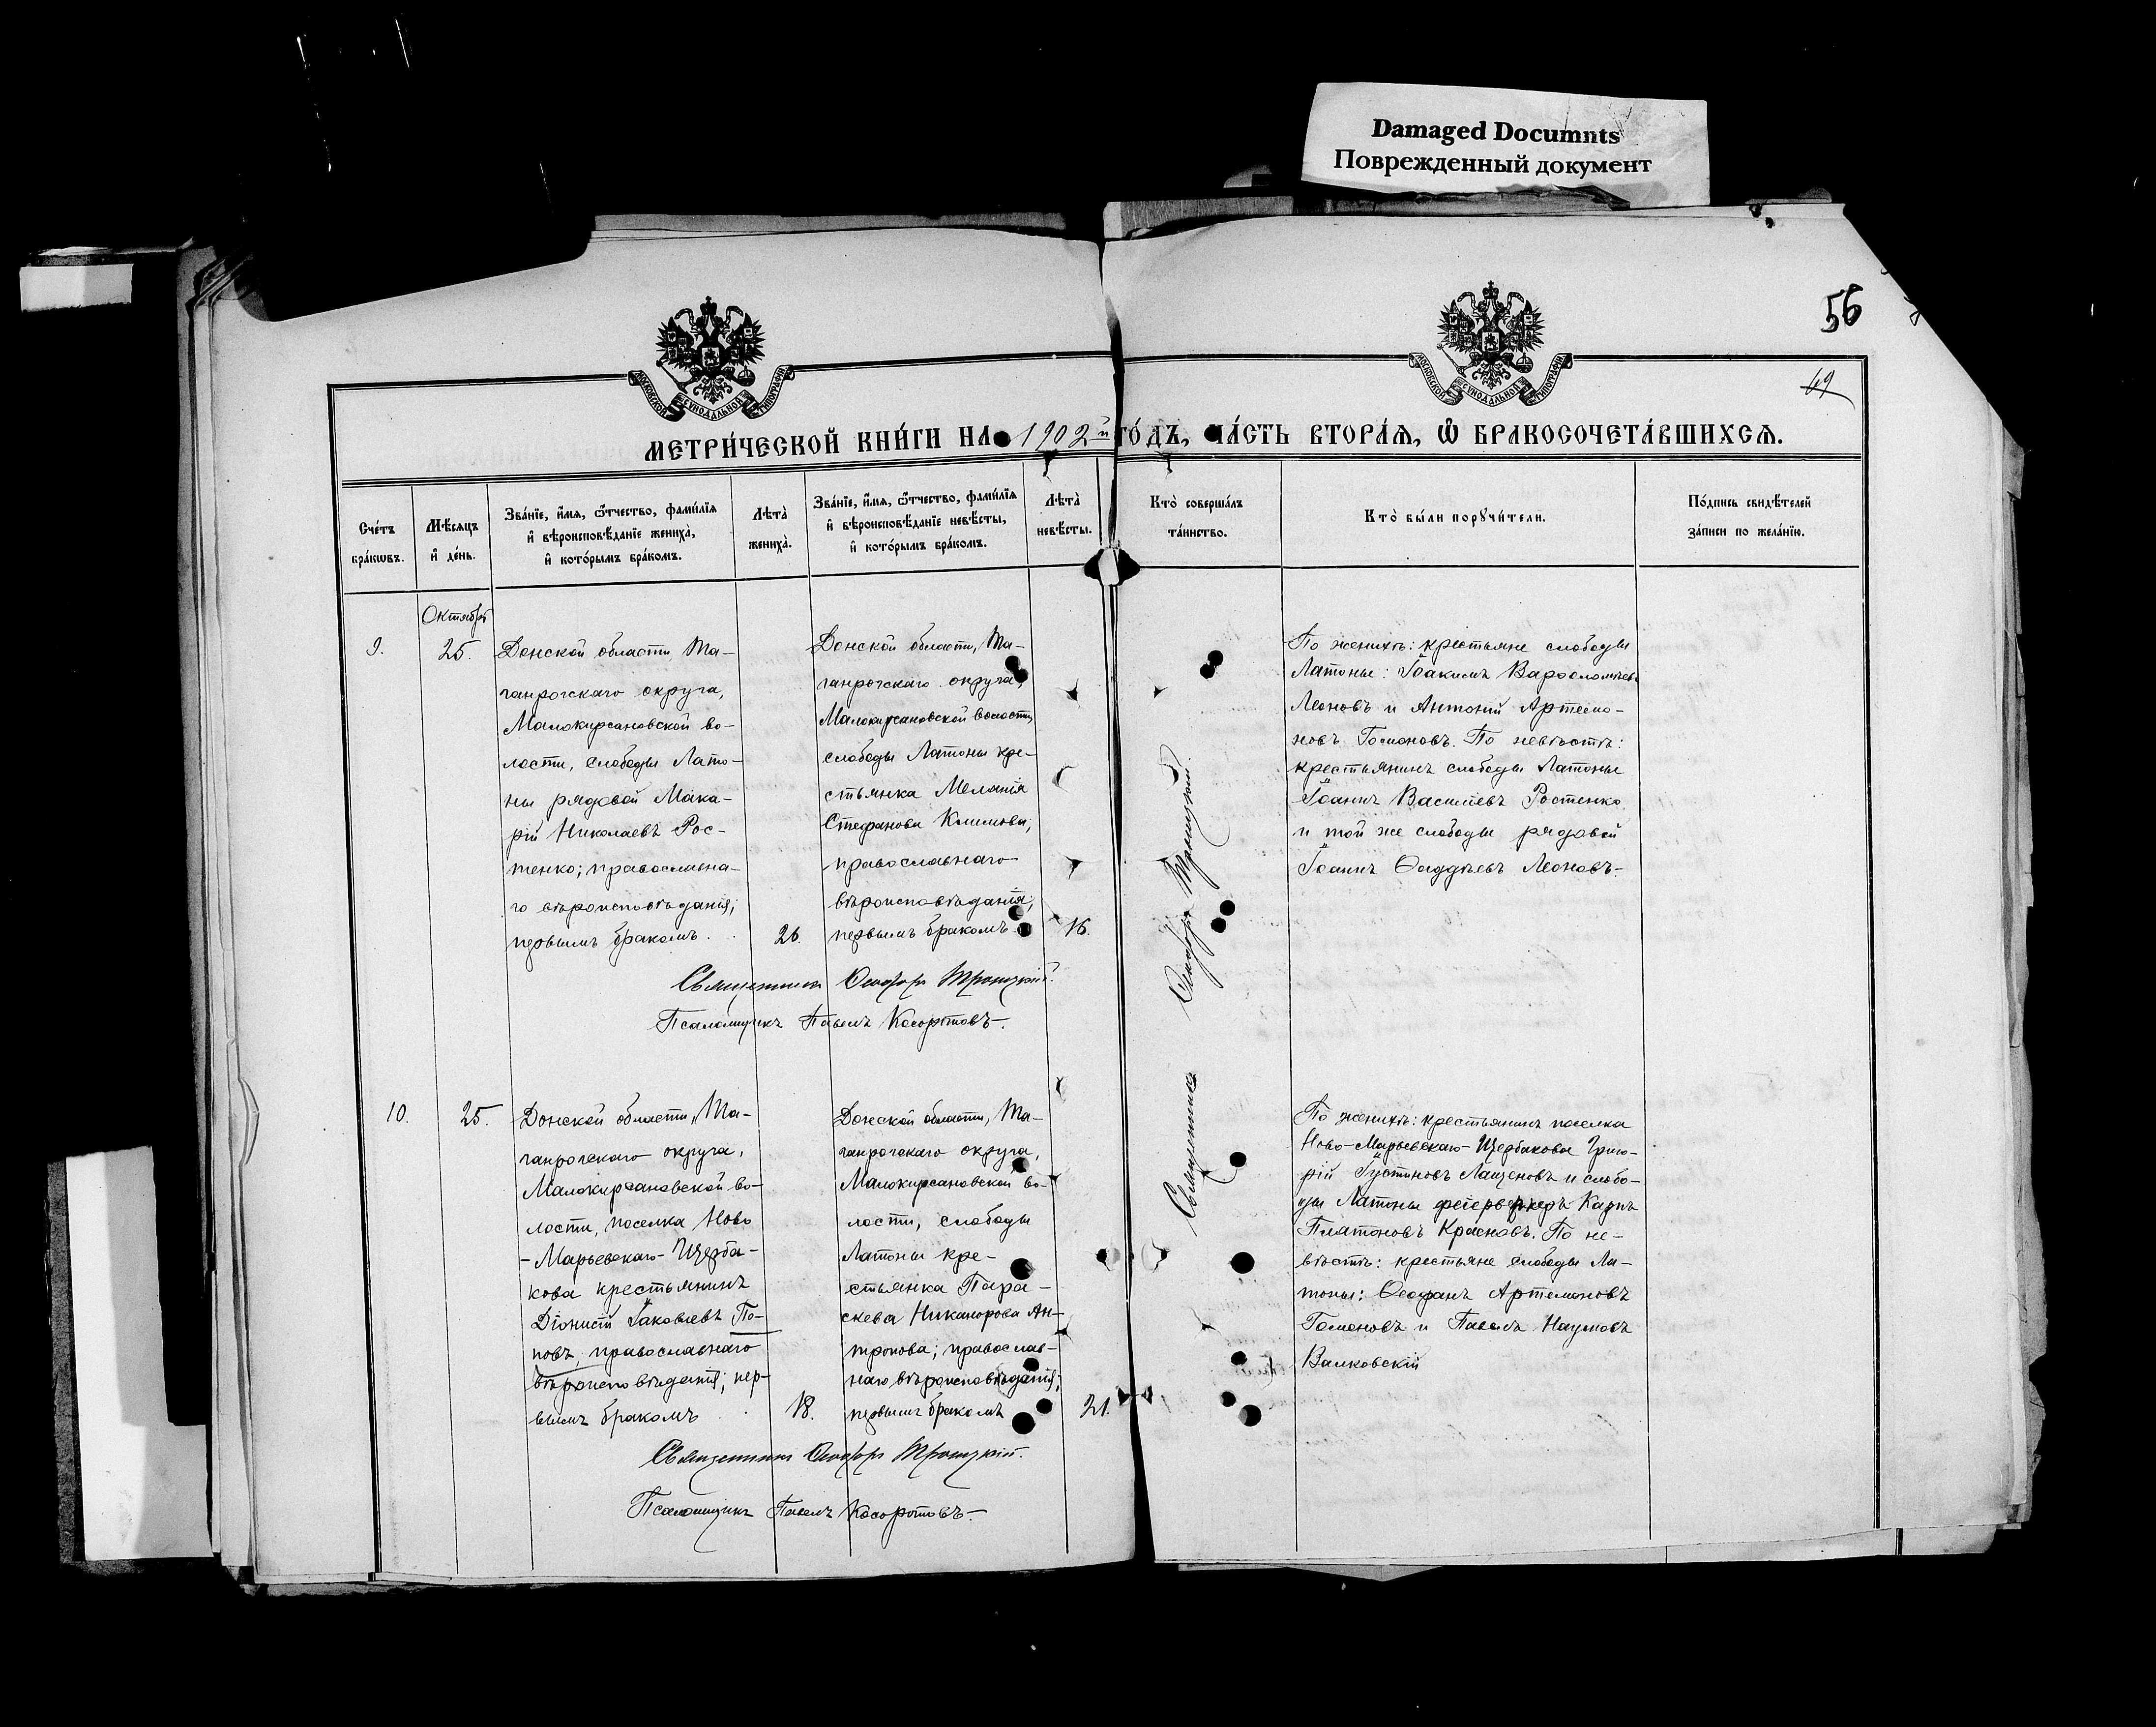 Damaged Documnts
Поврежденный документ
56
69
МОСКОВСКОЙ СУНОДАЛЬНОЙ ТИПОГРАФІИ
МОСКОВСКОЙ СУНОДАЛЬНОЙ ТИПОГРАФІИ
МЕТРИ́ЧЕСКОЙ КНИ́ГИ НА 1902й ГО́ДЪ, ЧА́СТЬ ВТОРА́Я, Ѽ БРАКОСОЧЕТА́ВШИХСЯ.
Сче́тъ
бра́кѡвъ.
Мѣ́сяцъ
и҆ де́нь.
Зва́нїе, и҆́мя, ѻ҆́тчество, фами́лїя
и҆ вѣроисповѣ́данїе жениха̀,
и҆ кото́рымъ бра́комъ.
Лѣта̀
жениха̀.
Зва́нїе, и҆́мя, ѻ҆́тчество, фами́лїя
и҆ вѣроисповѣ́данїе невѣ́сты,
и҆ кото́рымъ бра́комъ.
Лѣта̀
невѣ́сты.
Кто̀ соверша́лъ
та́инство.
Кто̀ бы́ли порꙋчи́тели.
По́дпись свидѣ́телей
за́писи по жела́нїю.
Октябрь
9.
25.
Донской области, Та-
ганрогскаго округа,
Малокирсановской во-
лости, слободы Лато-
ны рядовой Мака-
рій Николаевъ Рос-
тенко; православна-
го вѣроисповѣданія;
первымъ бракомъ.
26.
Донской области, Та-
ганрогскаго округа,
Малокирсановской волости
слободы Латоны кре-
стьянка Меланія
Стефанова Климова,
православнаго
вѣроисповѣданія,
первымъ бракомъ.
16.
Священникъ Ѳеодоръ Троицкій.
По женихѣ: крестьяне слободы
Латоны: Іоакимъ Варѳоломѣевъ
Леоновъ и Антоній Артемо-
новъ Гомоновъ. По невѣстѣ:
крестьянинъ слободы Латоны
Іоаннъ Васильевъ Ростенко
и той же слободы рядовой
Іоаннъ Ѳаддѣевъ Леоновъ.
Священникъ Ѳеодоръ Троицкій.
Псаломщикъ Павелъ Косоротовъ.
10.
25.
Донской области, Та-
ганрогскаго округа,
Малокирсановской во-
лости, поселка Ново
-Марьевскаго-Щерба-
кова крестьянинъ
Діонисій Іаковлевъ По-
повъ, православнаго
вѣроисповѣданія; пер-
вымъ бракомъ
18.
Донской области, Та-
ганрогскаго округа,
Малокирсановской во-
лости, слободы
Латоны кре-
стьянка Пара-
скева Никанорова Ан-
тропова; православ-
наго вѣроисповѣданія;
первымъ бракомъ
21.
По женихѣ: крестьянинъ поселка
Ново-Марьевскаго-Щербакова Григо-
рій Іустиновъ Лащеновъ и слобо-
ды Латоны фейерверкеръ Карпъ
Платоновъ Красновъ. По не-
вѣстѣ: крестьяне слободы Ла-
тоны: Ѳеофанъ Артемоновъ
Гомоновъ и Павелъ Наумовъ
Валковскій
Священникъ Ѳеодоръ Троицкій.
Псаломщикъ Павелъ Косоротовъ.